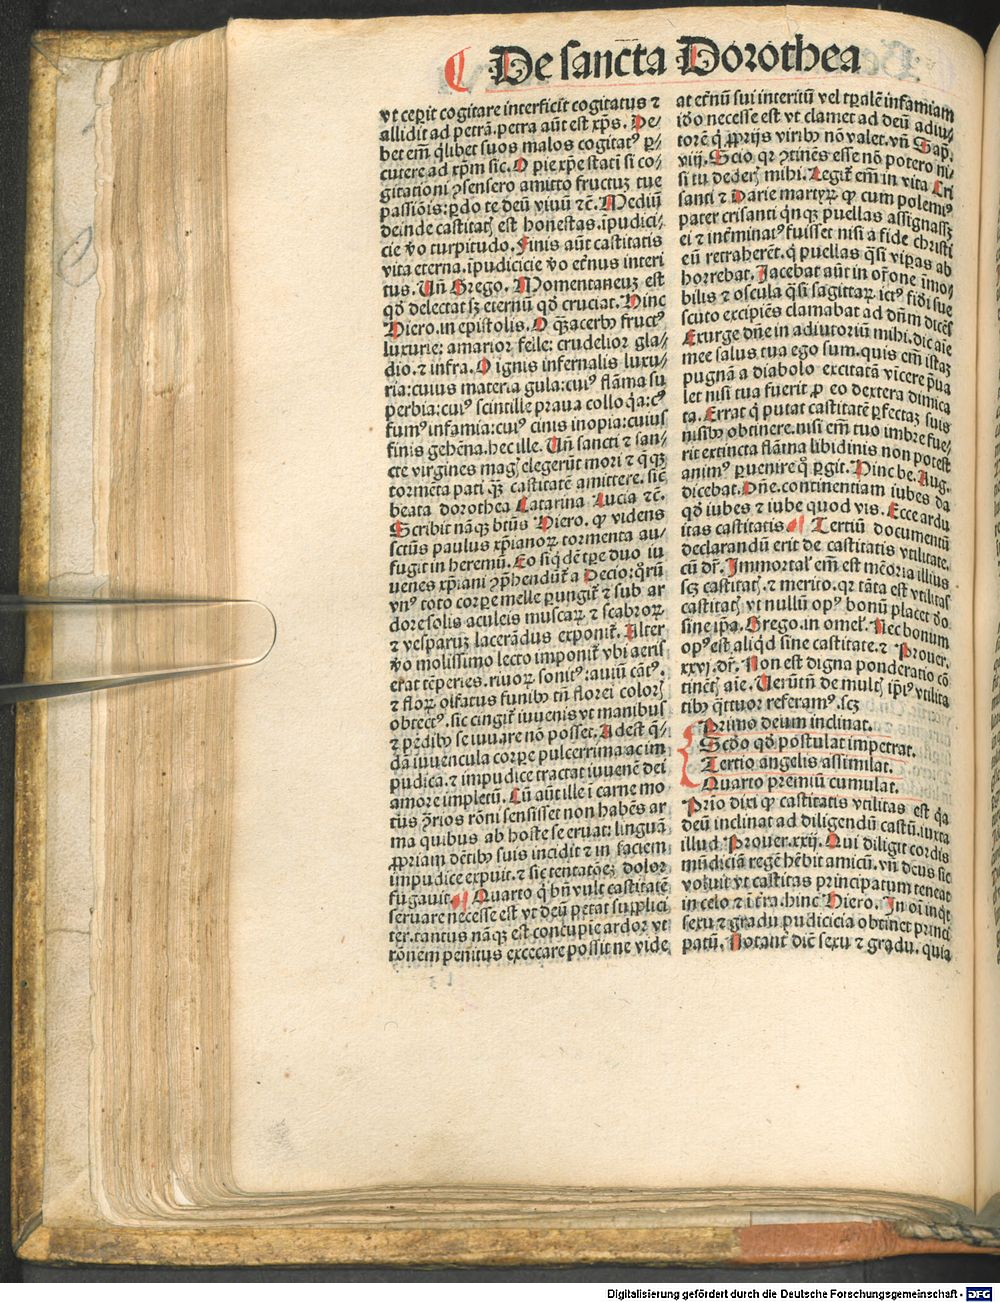 De sancta Dorothea
vt ceperit cogitare interficit cogitatus ⁊
allidit ad petrā. petra aūt est xp̄s. De⸗
bet em̄ q̄libet suos malos cogitatꝰ ꝑ⸗
cutere ad xp̄m sic. O pie xp̄e statī si co⸗
gitationi ꝯsensero amitto fructuȝ tue
passiōis: ꝑdo te deū viuū ⁊c̄. Mediū
deinde castitatꝭ est honestas. īpudici⸗
cie v̄o turpitudo. Finis aūt castitatis
vita eterna. īpudicicie v̄o et̄nus interi
tus. Vn̄ Grego. Momentaneuȝ est
qd̄ delectat sȝ eternū qd̄ cruciat. Hinc
Hiero. in epistolis. O q̄ȝ acerbꝰ fructꝰ
luxurie: amarior felle: crudelior gla⸗
dio. ⁊ infra. O ignis infernalis luxu⸗
ria: cuius materia gula: cuiꝰ flāma su
perbia: cuiꝰ scintille praua colloq̄a: cꝰ
fumꝰ infamia: cuiꝰ cinis inopia: cuius
finis gehēna. hec ille. Vn̄ sancti ⁊ san⸗
cte virgines magꝭ elegerūt mori ⁊ q̄q̄ȝ
tormēta pati q̄ȝ castitatē amittere. sic̄
beata dorothea Catarina Lucia ⁊c̄.
Scribit nāqȝ btūs Hiero. ꝙ videns
sctūs paulus xp̄ianoꝝ tormenta au⸗
fugit in heremū. Eo siq̇dē tꝑe duo iu
uenes xp̄iani ꝯp̄hendūt̄ a Decio: q̊rū
vnꝰ toto corꝑe melle ꝑungit̄ ⁊ sub ar
dore solis aculeis muscaꝝ ⁊ scabroꝝ
⁊ vesparuȝ lacerādus exponit̄. Alter
v̄o molissimo lecto imponit̄ vbi aeris
erat tēperies. riuoꝝ sonitꝰ: auiū cātꝰ.
⁊ floꝝ olfatus funibꝰ tn̄ florei colorꝭ
obtectꝰ. sic cingit̄ iuuenis vt manibus
⁊ pedibꝰ se iuuare nō posset. Adest q̄⸗
dā iuuencula corꝑe pulcerrima ac im
pudica. ⁊ impudice tractat iuuenē dei
amore impletū. Cū aūt ille ī carne mo
tus ꝯ̄rios rōni sensisset non habēs ar
ma quibus ab hoste se eruat: linguā
ꝓpriam dētibꝰ suis incidit ⁊ in faciem
impudice expuit. ⁊ sic tentatōeȝ dolor
fugauit. Quarto q̇ bn̄ vult castitatē
seruare necesse est vt deū petat supplici
ter. tantus nāqȝ est concupie ardor vt
rōnem penitus excecare possit ne vide
at et̄nū sui interitū vel tꝑalē infamiam
iđo necesse est vt clamet ad deū adiu⸗
torē q̇ ꝓprijs viribꝰ nō valet. vn̄ Sap̄.
viij. Scio qr ꝯtinēs esse nō potero ni⸗
si tu dederꝭ mihi. Legit̄ em̄ in vita Cri
santi ⁊ Darie martyꝝ ꝙ cum polemiꝰ
pater crisanti q̇nqȝ puellas assignassȝ
ei ⁊ int̄minatꝰ fuisset nisi a fide christi
eū retraherēt. q̇ puellas q̄si viꝑas ab
horrebat. Jacebat aūt in or̄one īmo⸗
bilis ⁊ oscula q̄si sagittaꝝ ictꝰ fiđi sue
scuto excipiēs clamabat ad dn̄m dicēs
Exurge dn̄e in adiutoriū mihi. dic aīe
mee salus tua ego sum. quis em̄ istaȝ
pugnā a diabolo excitatā vicere p̄ua
let nisi tua fuerit ꝓ eo dextera dimica
ta. Errat q̇ putat castitatē ꝑfectaȝ suis
nisibꝰ obtinere. nisi em̄ tuo imbre fue⸗
rit extincta flāma libidinis non potest
animꝰ ꝑuenire q̊ ꝑgit. Hinc be. Aug.
dicebat. Dn̄e. continentiam iubes da
qd̄ iubes ⁊ iube quod vis. Ecce ardu
itas castitatis. Tertiū documentū
declarandū erit de castitatis vtilitate.
cū dr̄. Immortal̄ em̄ est mēoria illius
scȝ castitatꝭ. ⁊ merito. qr tāta est vtilitas
castitatꝭ vt nullū opꝰ bonū placet đo
sine ip̄a. Grego. in omel̄. Nec bonum
opꝰ est aliq̇d sine castitate. ⁊ Prouer.
xxvi. dr̄. Non est digna ponderatio cō
tinētꝭ aīe. Verūtn̄ de multꝭ ip̄iꝰ vtilita
tibꝰ q̄ttuor referamꝰ. scȝ
Primo deum inclinat.
Scđo qđ postulat impetrat.
Tertio angelis assimilat.
Quarto premiū cumulat.
Prīo dixi ꝙ castitatis vtilitas est q̇a
deū inclinat ad diligendū castū. iuxta
illud Prouer. xxij. Qui diligit cordis
mūdiciā regē hēbit amicū. vn̄ deus sic
voluit vt castitas principatum teneat
in celo ⁊ ī t̄ra. hinc Hiero. In oī inq̇t
sexu ⁊ gradu pudicicia obtinet princi
patū. Notant̄ dic̄ sexu ⁊ gradu. quia
Digitalisierung gefördert durch die Deutsche Forschungsgemeinschaft - DFG